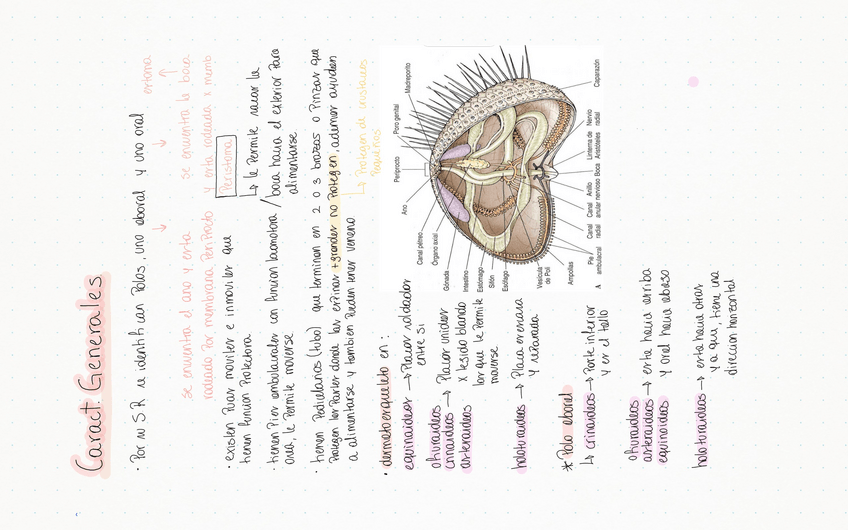 Caract. Generales
· Por su S R se identifican Polos, uno aboral y uno oral
externa
se encuentra el ano y esta
rodeado Por membrana PeriProcto
se encuentra la boca
y esta rodeada x memb
Peristoma
↳ le Permite sacar la
boca hacia el exterior Para
alimentarse
· existen Puas moviles e inmoviles que
tienen funsion Protectora
· tienen Pies ambulacrales con funsion locomotora /
area, le Permite moverse
· tienen Pedicelarios (tubo) que terminan en 2 o 3 brazos o Pinzas que
Protegen las Partes donde las esPinas + grandes no Protegen, ademas ayudan
a alimentarse y tambien Pueden tener veneno
↳ Protegen de crustaceos
Pequeños
· dermatoesqueleto en:
equinoideos → Placas soldadas
entre si
ofiuroideos
crinoideos → Placas unidas
asteroideos
x tejido blando
las que le Permite
moverse
holoturoideos → Placa
y separada
* Polo aboral
↳ crinoideos → Parte inferior
y es el tallo
ofiuroideos
asteroideos → esta hacia arriba
equinoideos
y oral hacia abajo
holoturoideos → esta hacia atras
ya que, tiene una
direccion horizontal
Madreporito
Poro genital
Periprocto
Ano
Canal pétreo
Órgano axial
Gónada
Intestino
Estómago
Sifón
Esófago
Vesícula
de Poli
Ampollas
Caparazón
Nervio
radial
Linterna de
Aristóteles
Boca
Anillo
nervioso
Canal
anular
Canal
radial
Pie
ambulacral
A